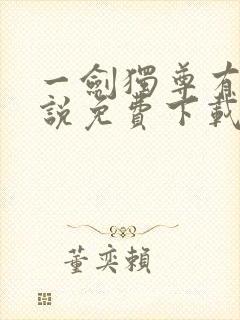 一劍獨尊有
說免費下載
董奕賴